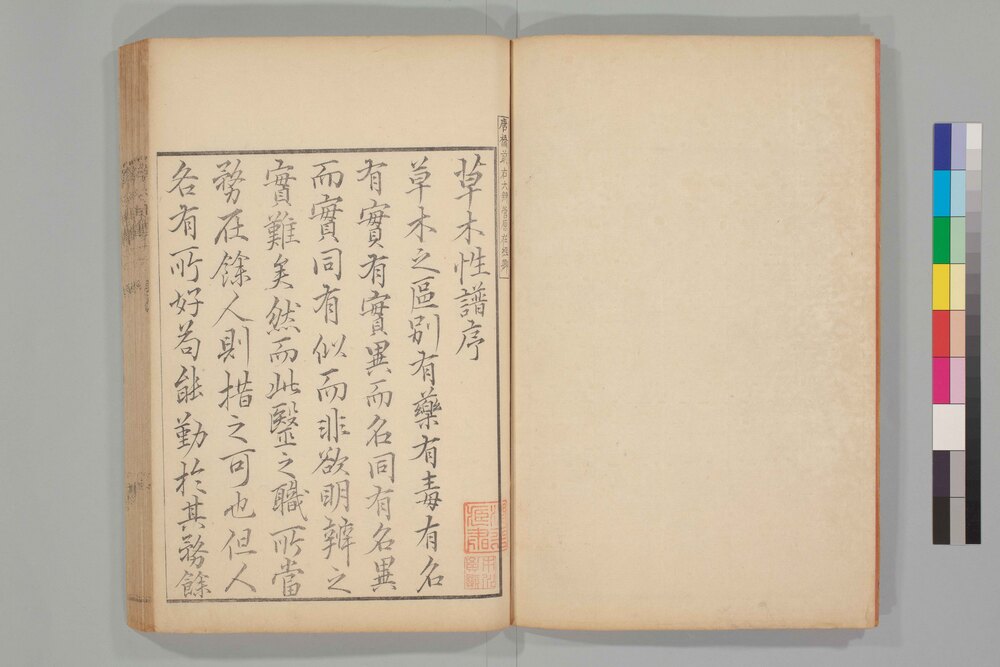 草木性譜序
草木之區別有藥有毒有名
有實有實異而名同有名異
而實同有似而非欲明辨之
實難矣然而此醫之職所當
務在餘人則措之可也但人
各有所好苟能勤於其務餘